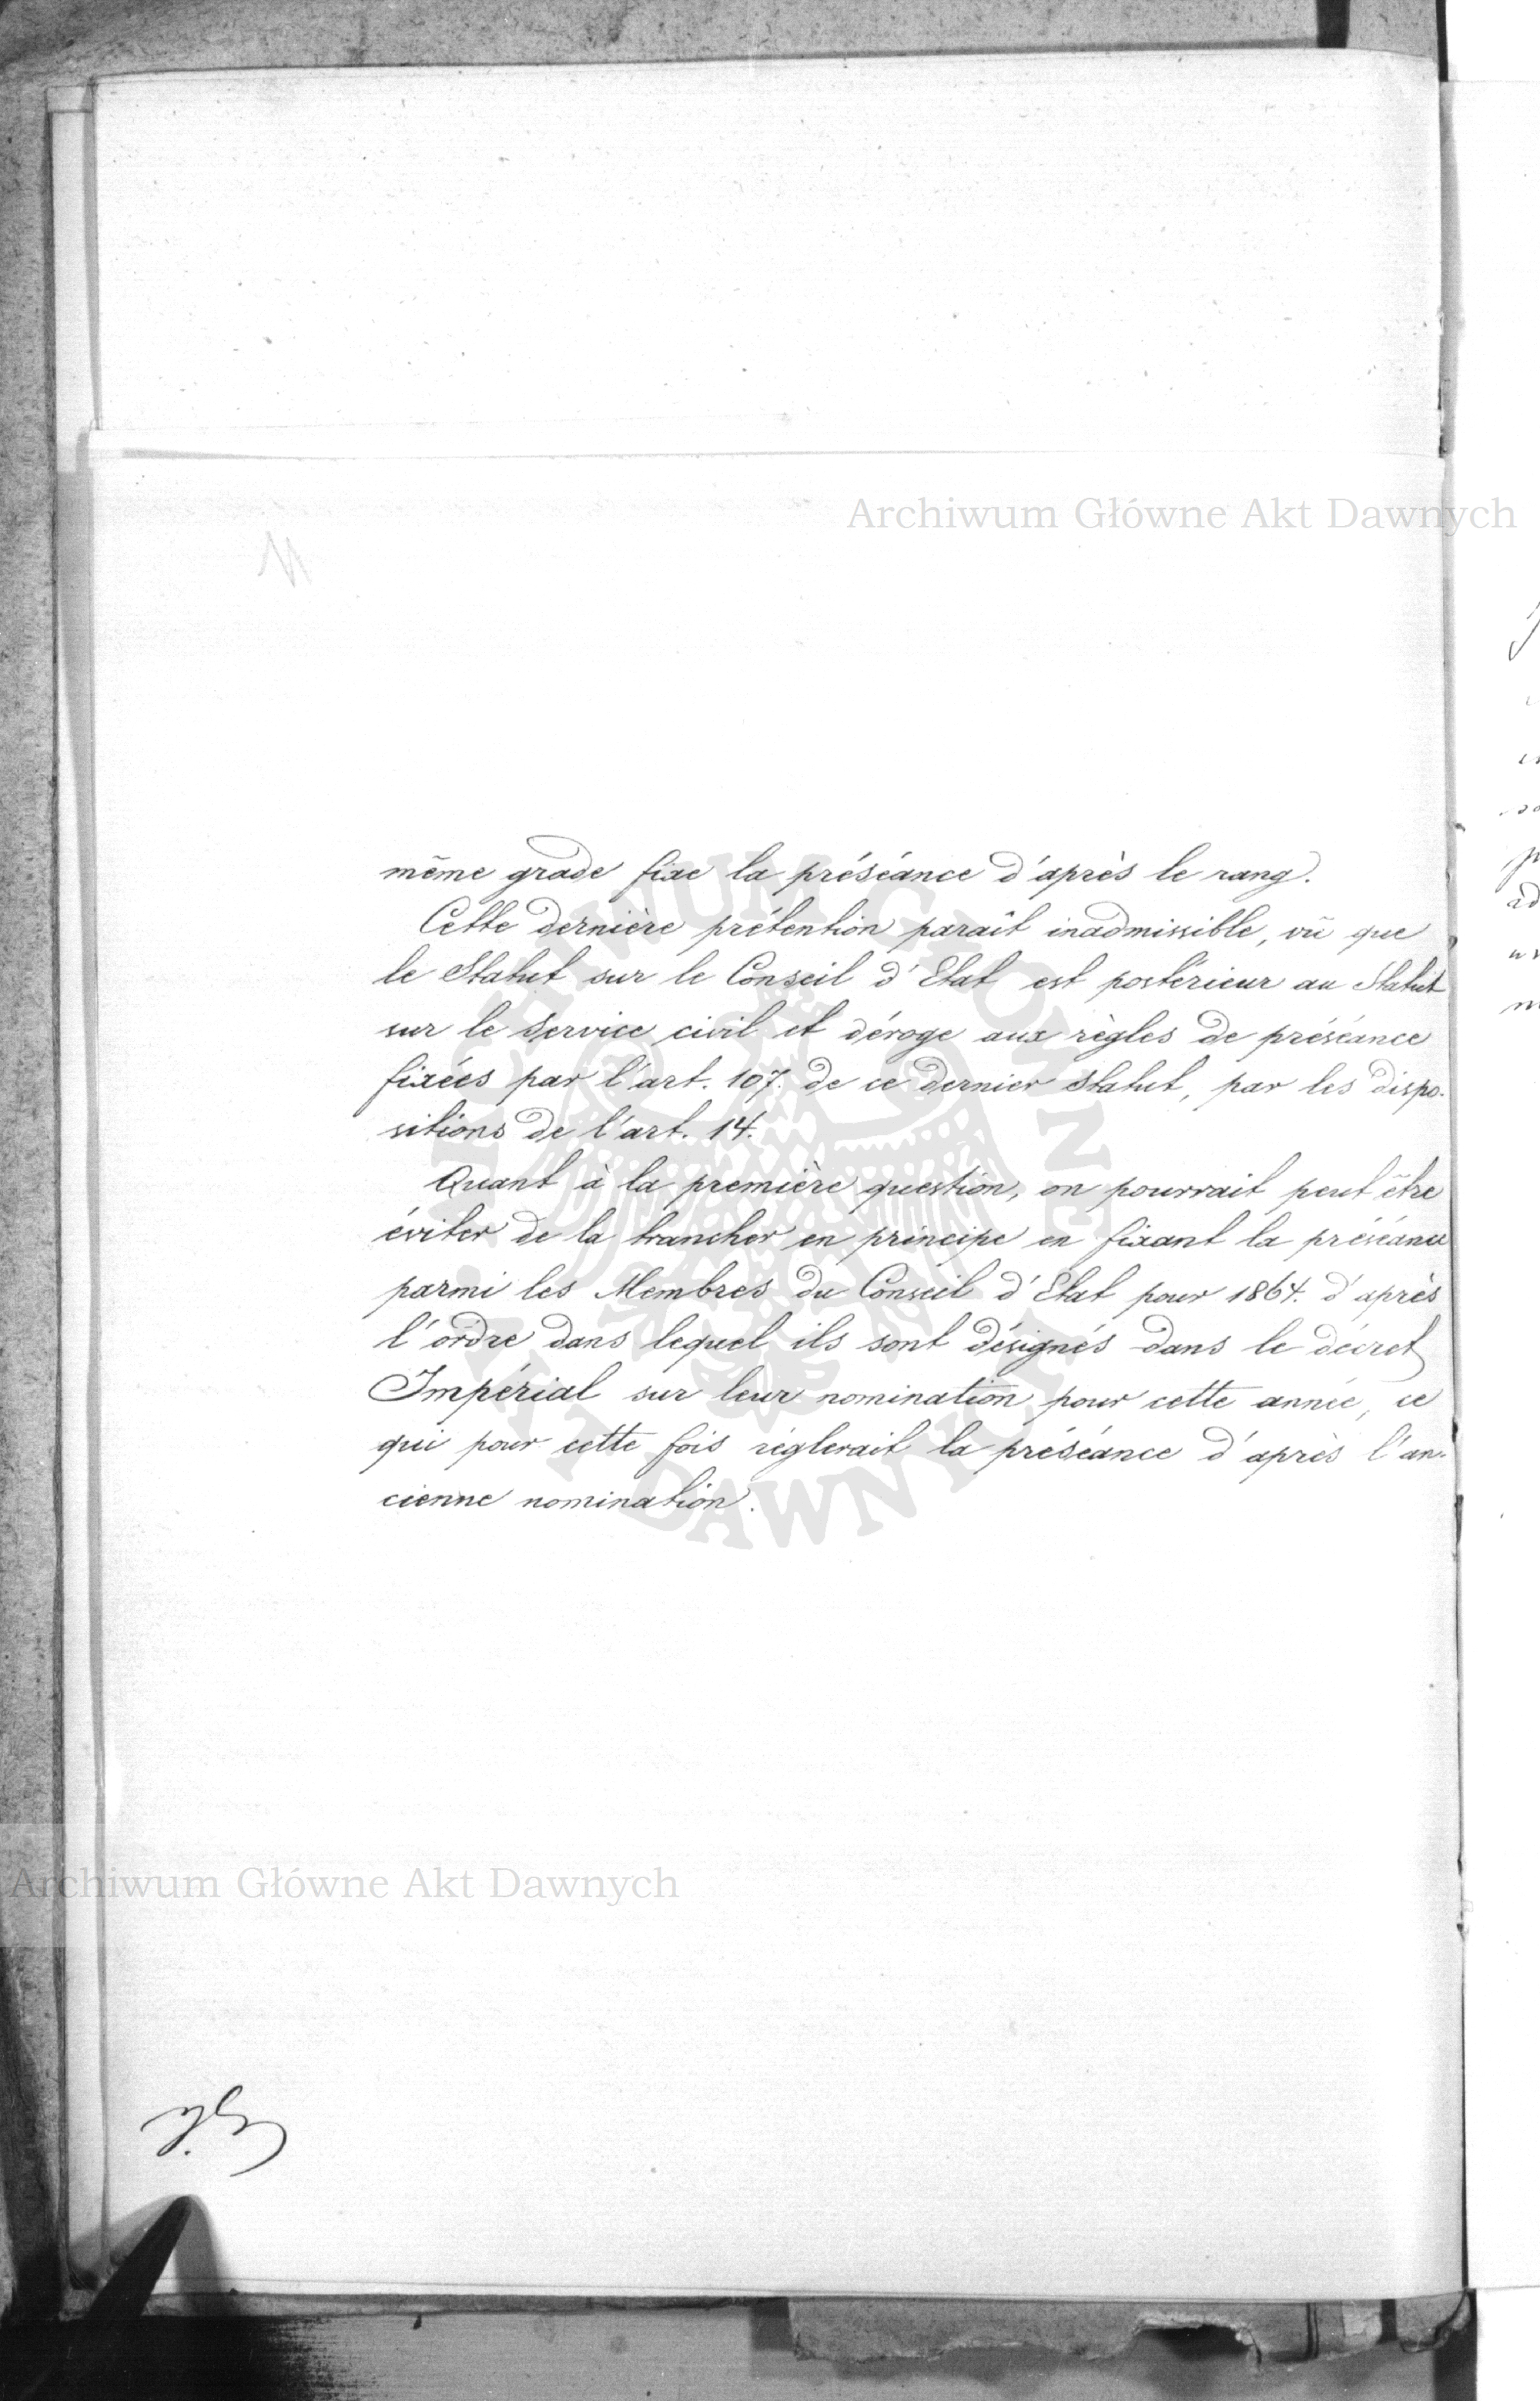 Archiwum Główne Akt Dawnych
même grade fixe la préséance d'après le rang.
Cette dernière prétention paraît inadmissible, vû que
le Statut sur le Conseil d'Etat est postérieur au Statut
sur le Service civil et déroge aux règles de préséance
fixées par l'art. 107. de ce dernier Statut, par les dispo-
sitions de l'art. 14.
Quant à la première question, on pourrait peut être
éviter de la trancher en principe en fixant la préséance
parmi les Membres du Conseil d'Etat pour 1864. d'après
l'ordre dans lequel ils sont désignés dans le décret
Impérial sur leur nomination pour cette année, ce
qui pour cette fois réglerait la préséance d'après l'an-
cienne nomination.
ARCHIWUM GŁÓWNE AKT DAWNYCH
Archiwum Główne Akt Dawnych